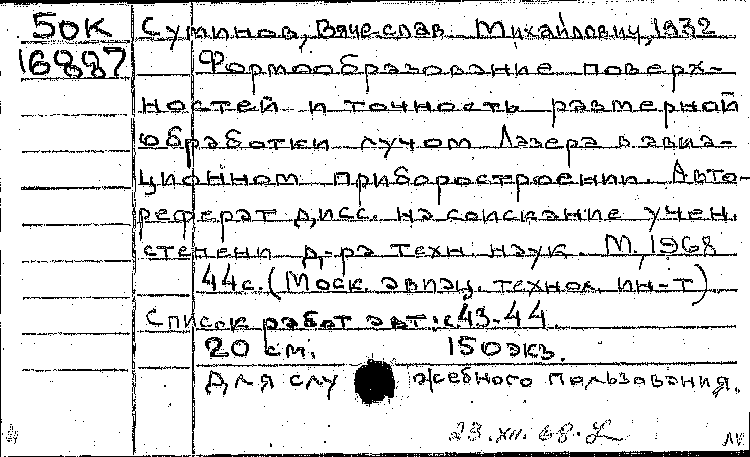 50К Суминов, Вячеслав Михайлович, 1932
16887 Формообразование поверх-
ностей и точность размерной
обработки лучом Лазера в авиа-
ционном приборостроении. Авто-
реферат дисс. на соискание учен.
степени д-ра техн. наук. М., 1968
44с. (Моск. авиац. технол. ин-т)
Список работ авт.: с 43-44.
20 см. 150 экз.
Для служебного пользования.
23.XII.68.